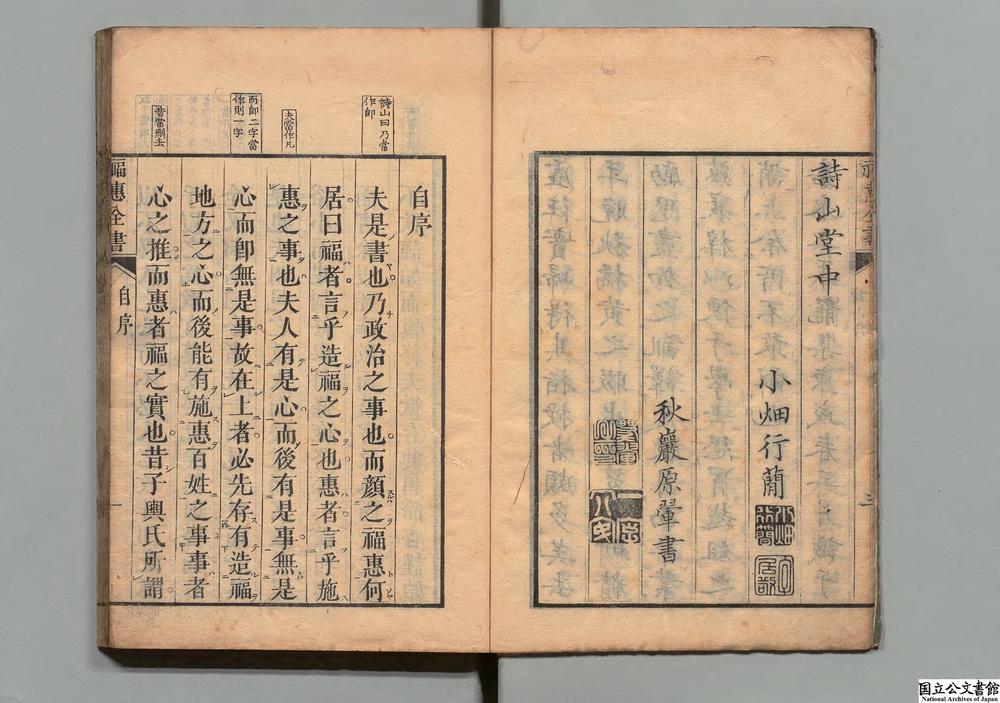 詩山堂中
小畑行簡
小畑
行簡
秋巖原翬書
詩山曰乃當
作卽
夫當作凡
而卽二字當
作則一字
昔當刪去
自序
夫是書也乃政治之事也而顏之福惠何
居曰福者言乎造福之心也惠者言乎施
惠之事也夫人有是心而後有是事無是
心而卽無是事故在上者必先存有造福
地方之心而後能有施惠百姓之事事者
心之推而惠者福之實也昔子輿氏所謂
福惠全書
自序
一
国立公文書館
National Archives of Japan